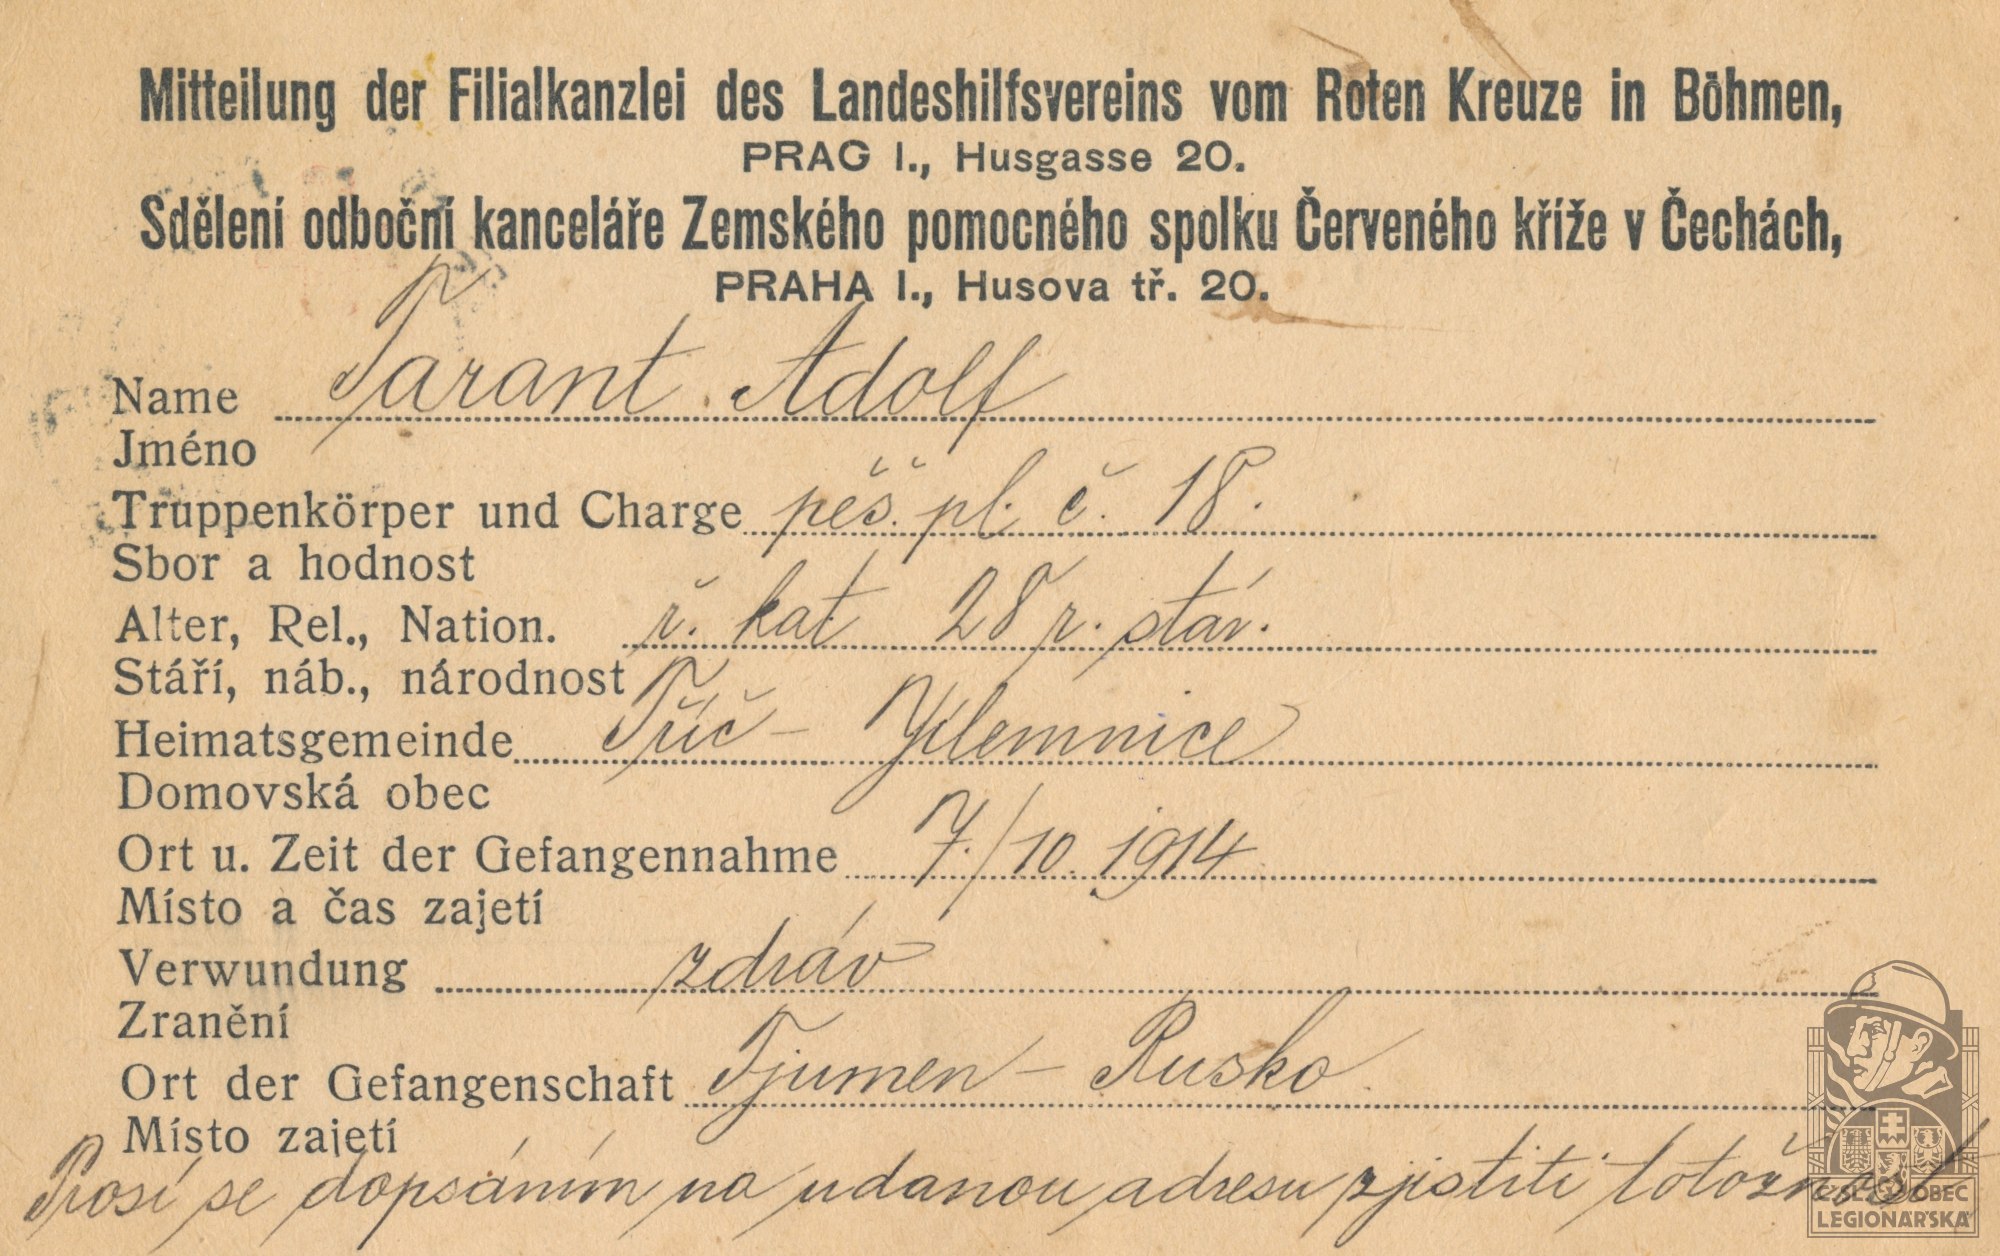 Mitteilung der Filialkanzlei des Landeshilfsvereins vom Roten Kreuze in Böhmen,
PRAG I., Husgasse 20.
Sdělení odboční kanceláře Zemského pomocného spolku Červeného kříže v Čechách,
PRAHA I., Husova tř. 20.
Name Parant Adolf
Jméno
Truppenkörper und Charge pěš. pl. č. 18.
Sbor a hodnost
Alter, Rel., Nation. ř. kat 28 r. stár.
Stáří, náb., národnost
Heimatsgemeinde - Jilemnice
Domovská obec
Ort u. Zeit der Gefangennahme 7./10. 1914
Místo a čas zajetí
Verwundung zdráv
Zranění
Ort der Gefangenschaft Tjumen - Rusko
Místo zajetí
Prosí se dopsáním na udanou adresu zjistiti totožnost
ČSL. OBEC
LEGIONÁŘSKÁ